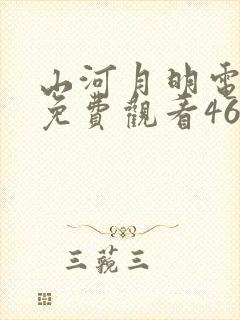 山河月明電
免費觀看46
三蒓三